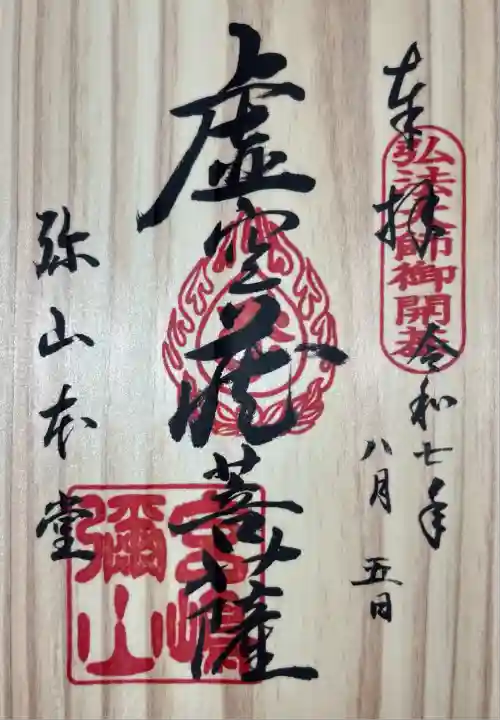 奉拝
弘法大師御開基
令和七年
八月五日
虚空蔵菩薩
弥山本堂
宮嶋
彌山